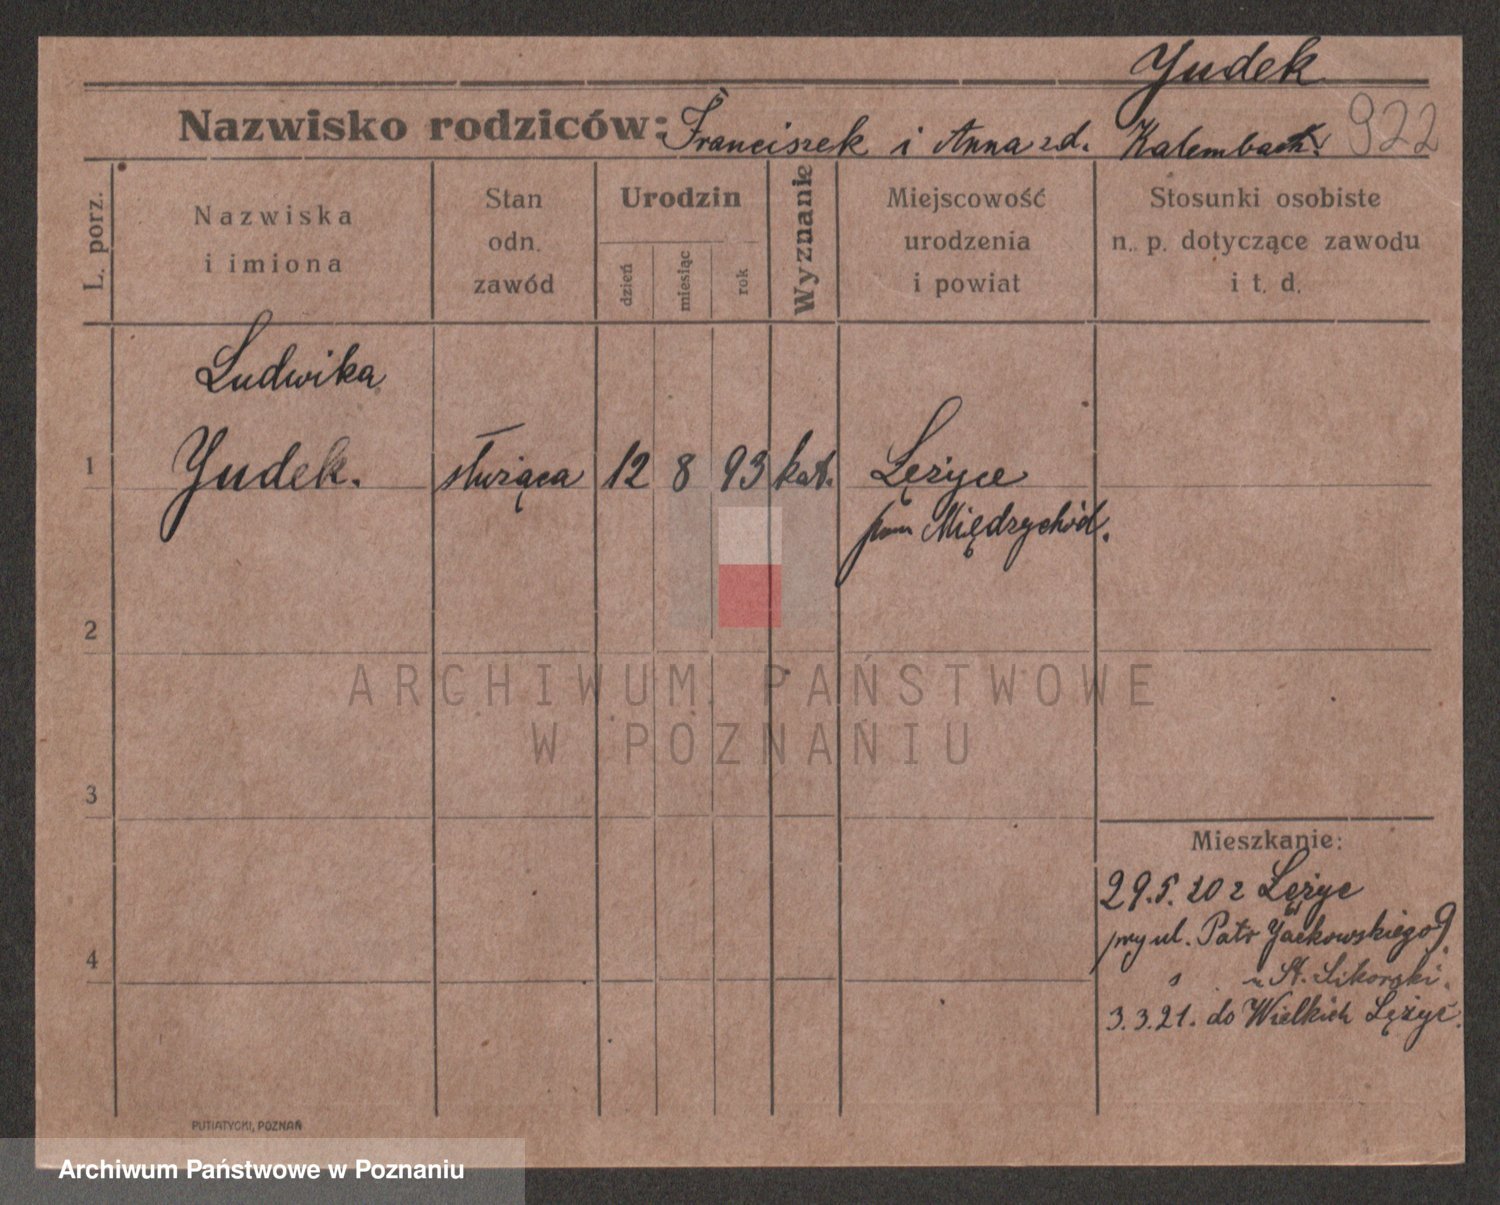 Yudek
Nazwisko rodziców: Franciszek i Anna zd. Kalembach. 922
L. porz.
Nazwiska
i imiona
Stan
odn.
zawód
Urodzin
dzień
miesiąc
rok
Wyznanie
Miejscowość
urodzenia
i powiat
Stosunki osobiste
n. p. dotyczące zawodu
i t. d.
Ludwika
1 Yudek. służąca 12 8 93 kat. Lężyce
pow Międzychód.
2
ARCHIWUM PAŃSTWOWE
W POZNANIU
3
Mieszkanie:
29.5.20 z Lężyc
przy ul. Patr Jackowskiego 9
4
u St. Sikorski.
3.3.21. do Wielkich Lężyc.
PUTIATYCKI, POZNAŃ
Archiwum Państwowe w Poznaniu